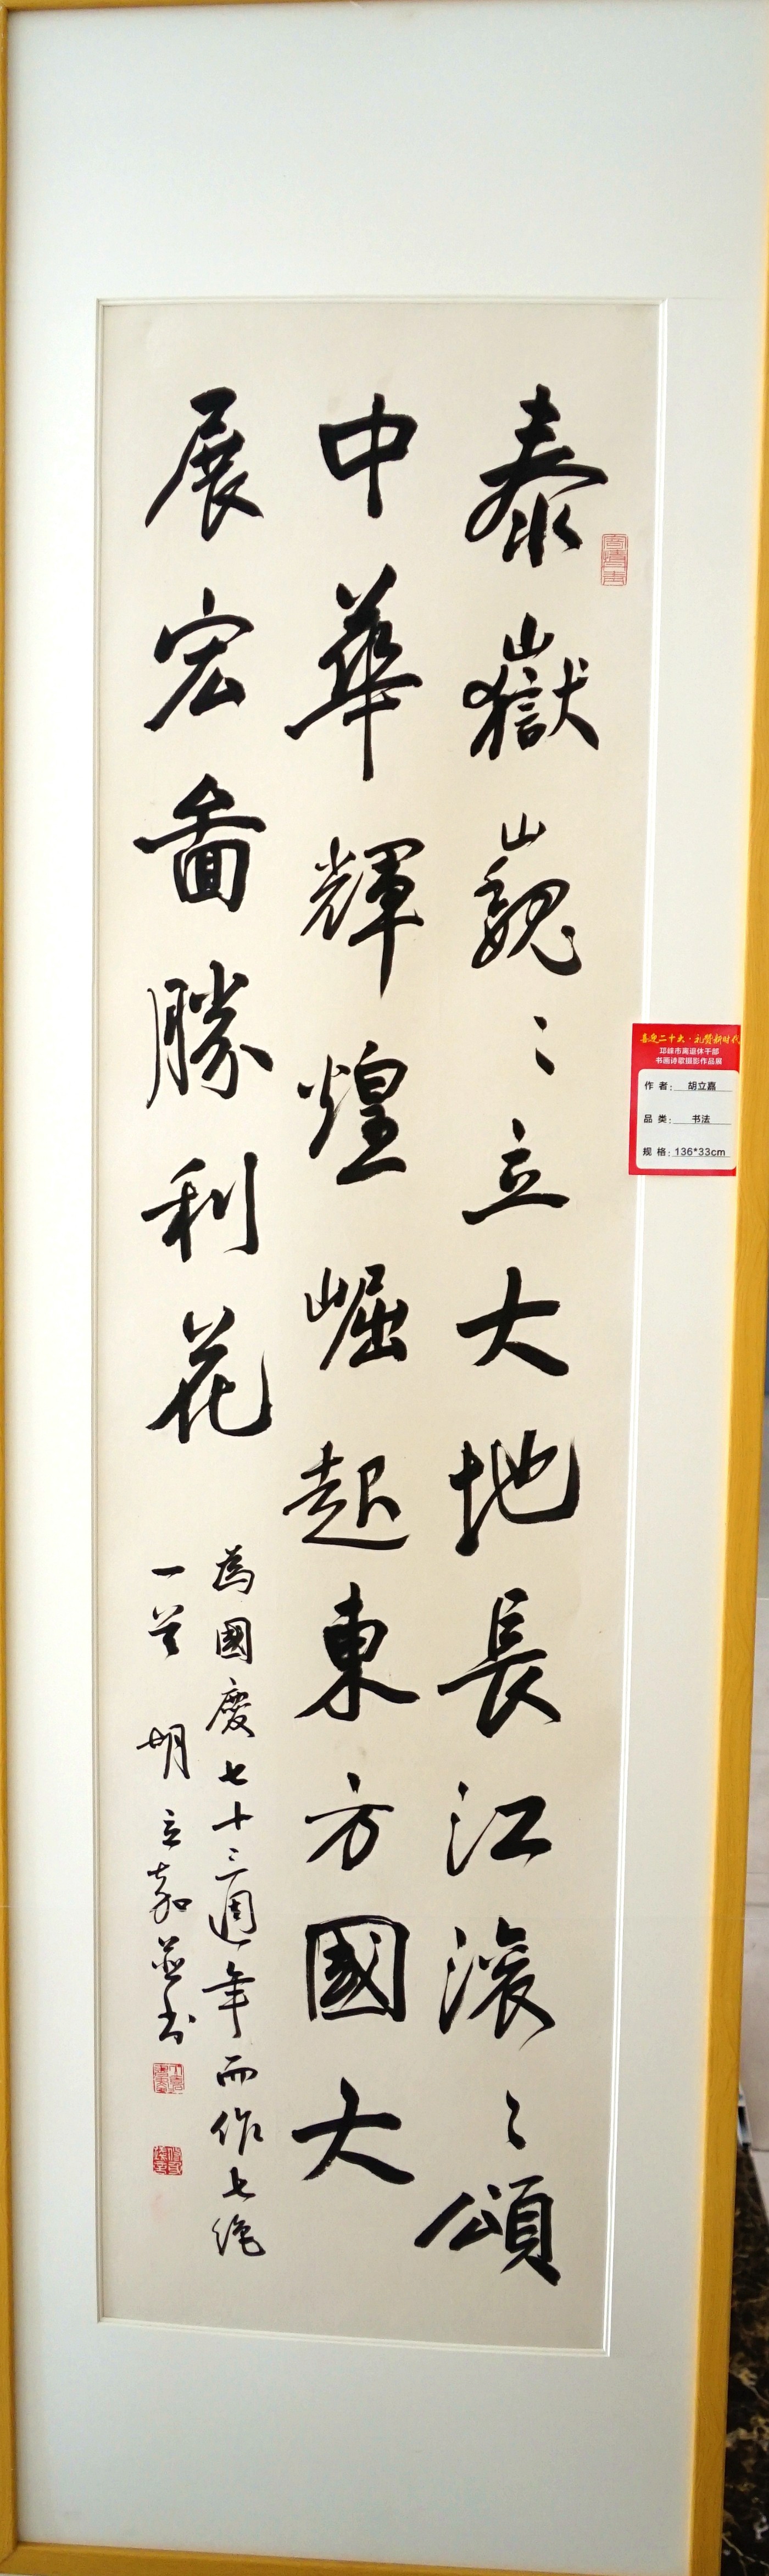 泰嶽巍〻立大地長江滾〻頌
中華輝煌崛起東方國大
展宏啚勝利花
為國慶七十三週年而作七绝
一首 胡立嘉並书
喜迎二十大·礼赞新时代
邛崃市离退休干部
书画诗歌摄影作品展
作 者： 胡立嘉
品 类： 书法
规 格：136*33cm